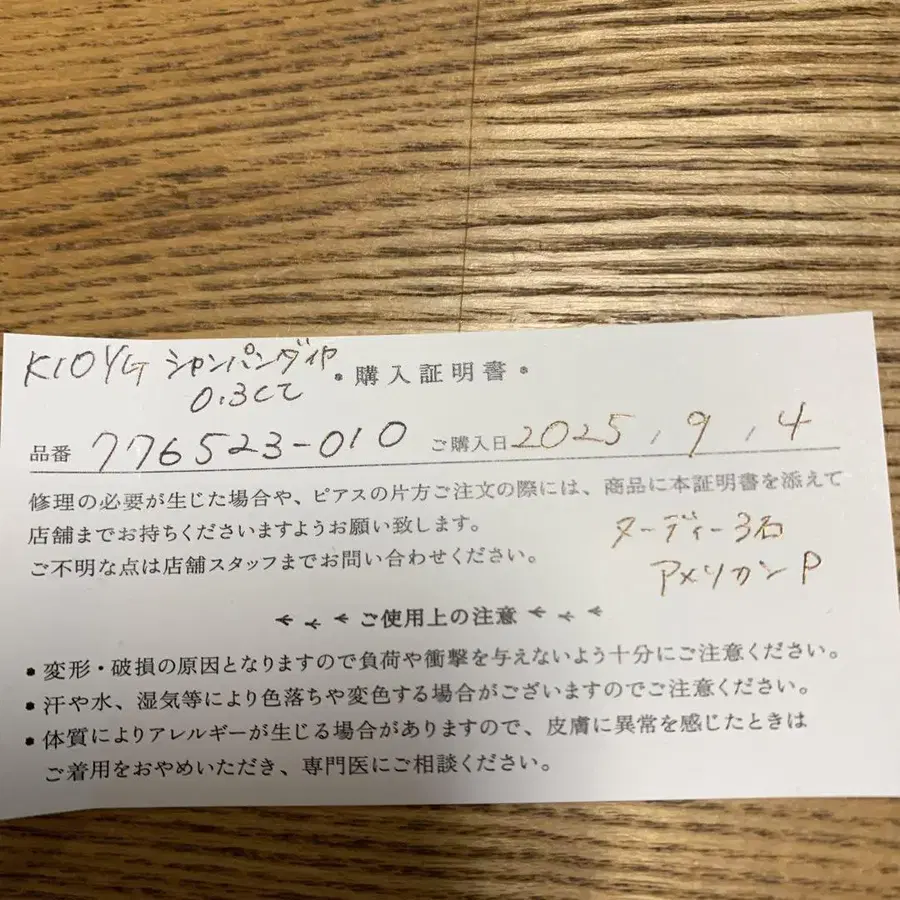 K10YG シャンパンダイヤ
0.3ct
・購入証明書・
品番 776523-010 ご購入日 2025.9.4
修理の必要が生じた場合や、ピアスの片方ご注文の際には、商品に本証明書を添えて
店舗までお持ちくださいますようお願い致します。
ご不明な点は店舗スタッフまでお問い合わせください。
ヌーディー3石
アメリカンP
ご使用上の注意
・変形・破損の原因となりますので負荷や衝撃を与えないよう十分にご注意ください。
・汗や水、湿気等により色落ちや変色する場合がございますのでご注意ください。
・体質によりアレルギーが生じる場合がありますので、皮膚に異常を感じたときは
ご着用をおやめいただき、専門医にご相談ください。